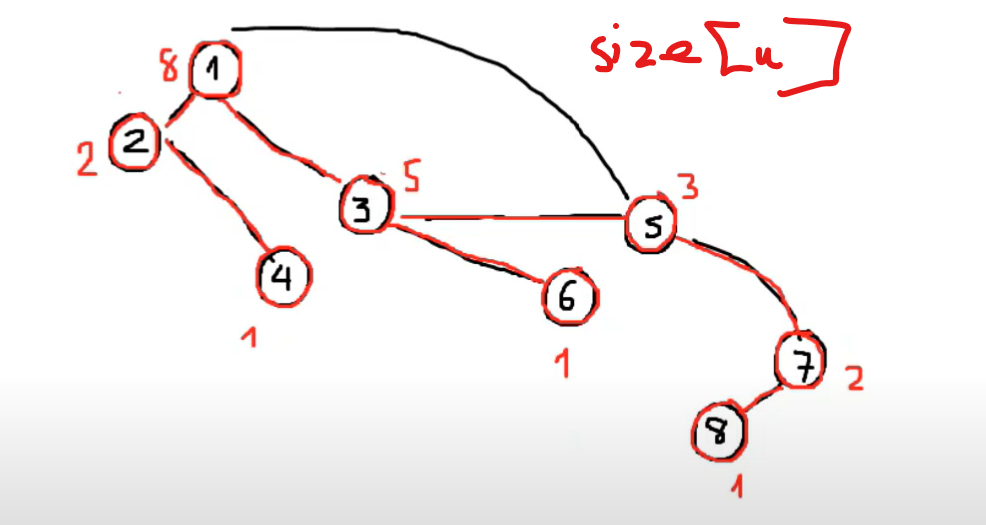 size[u]
8 1
2 2
3 5
5 3
4
1
6
1
7 2
8
1